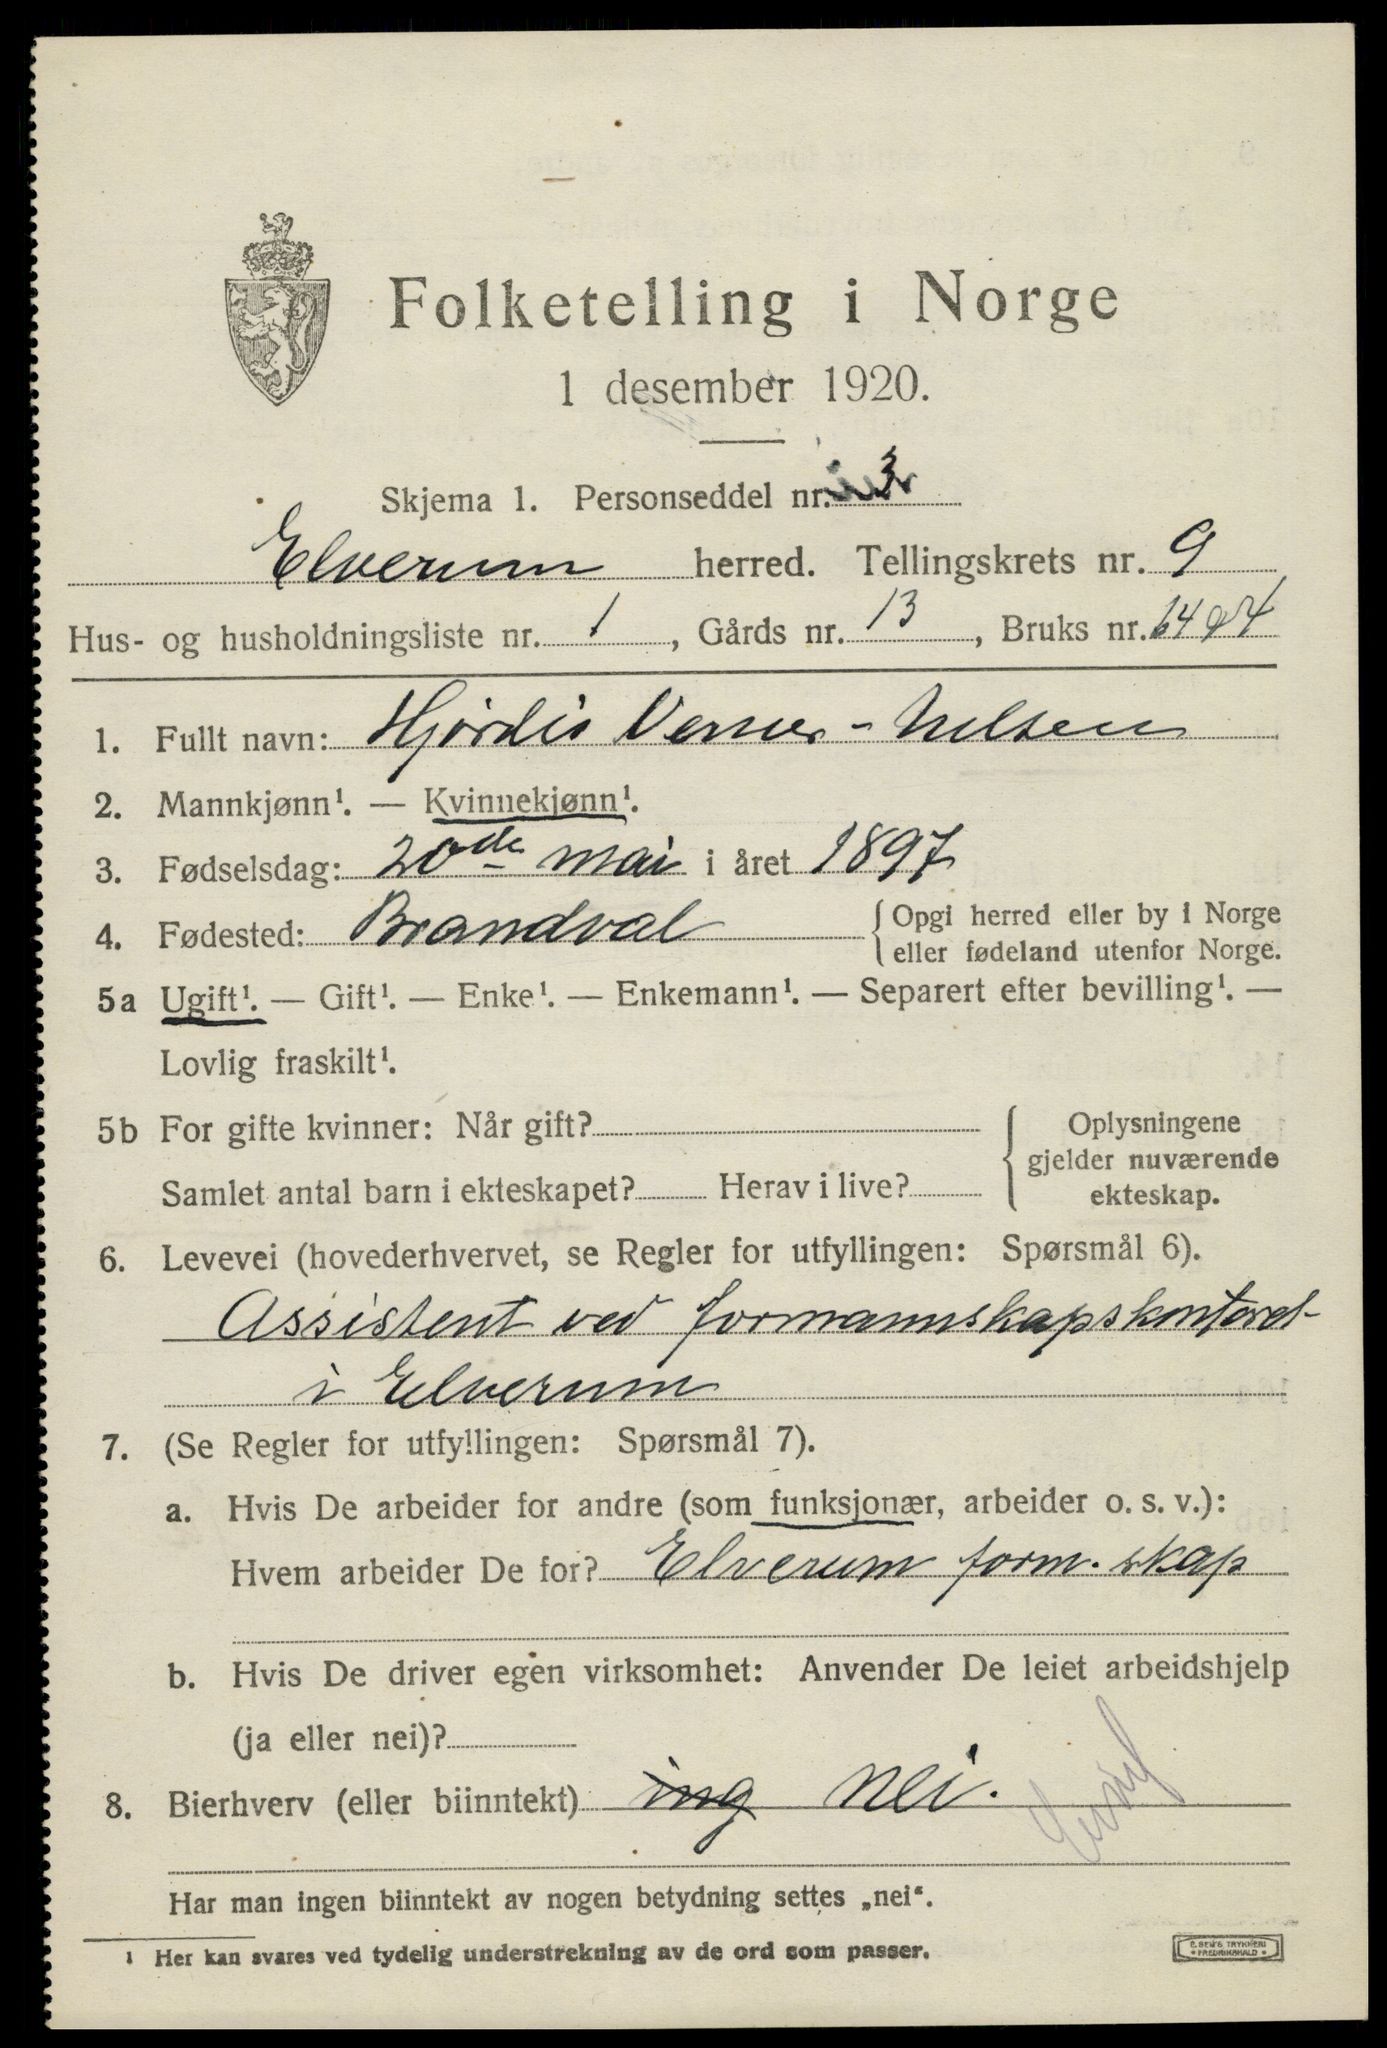 Folketelling i Norge
1 desember 1920.
Skjema 1. Personseddel nr. 3
Elverum herred. Tellingskrets nr. 9
Hus- og husholdningsliste nr. 1, Gårds nr. 13, Bruks nr. 64
1. Fullt navn: Hjördis Verner-Nilsen
2. Mannkjønn¹. — Kvinnekjønn¹.
3. Fødselsdag: 20de mai i året 1897
4. Fødested: Brandval {Opgi herred eller by i Norge
eller fødeland utenfor Norge.
5a Ugift¹. — Gift¹. — Enke¹. — Enkemann¹. — Separert efter bevilling¹. —
Lovlig fraskilt¹.
5b For gifte kvinner: Når gift? {Oplysningene
gjelder nuværende
Samlet antal barn i ekteskapet? Herav i live? ekteskap.
6. Levevei (hovederhvervet, se Regler for utfyllingen: Spørsmål 6).
Assistent ved formannskapskontoret
i Elverum
7. (Se Regler for utfyllingen: Spørsmål 7).
a. Hvis De arbeider for andre (som funksjonær, arbeider o. s. v.):
Hvem arbeider De for? Elverum form.skap
b. Hvis De driver egen virksomhet: Anvender De leiet arbeidshjelp
(ja eller nei)?
8. Bierhverv (eller biinntekt) ing nei.
Har man ingen biinntekt av nogen betydning settes „nei“.
¹ Her kan svares ved tydelig understrekning av de ord som passer.